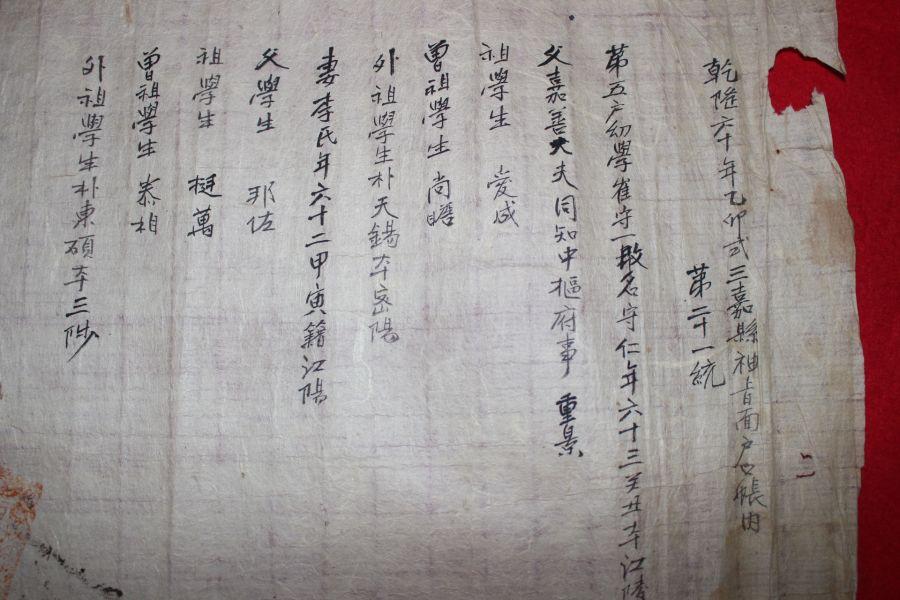 乾隆六十年乙卯式三嘉縣神旨面戶口帳內
第二十一統
第五戶幼學崔守一改名守仁年六十三癸丑本江陵
父嘉善大夫同知中樞府事 重景
祖學生 愛成
曾祖學生 尚
外祖學生朴天錫本密陽
妻李氏年六十二甲寅籍江陽
父學生 邦佐
祖學生 挺萬
曾祖學生 泰相
外祖學生朴東碩本三陟